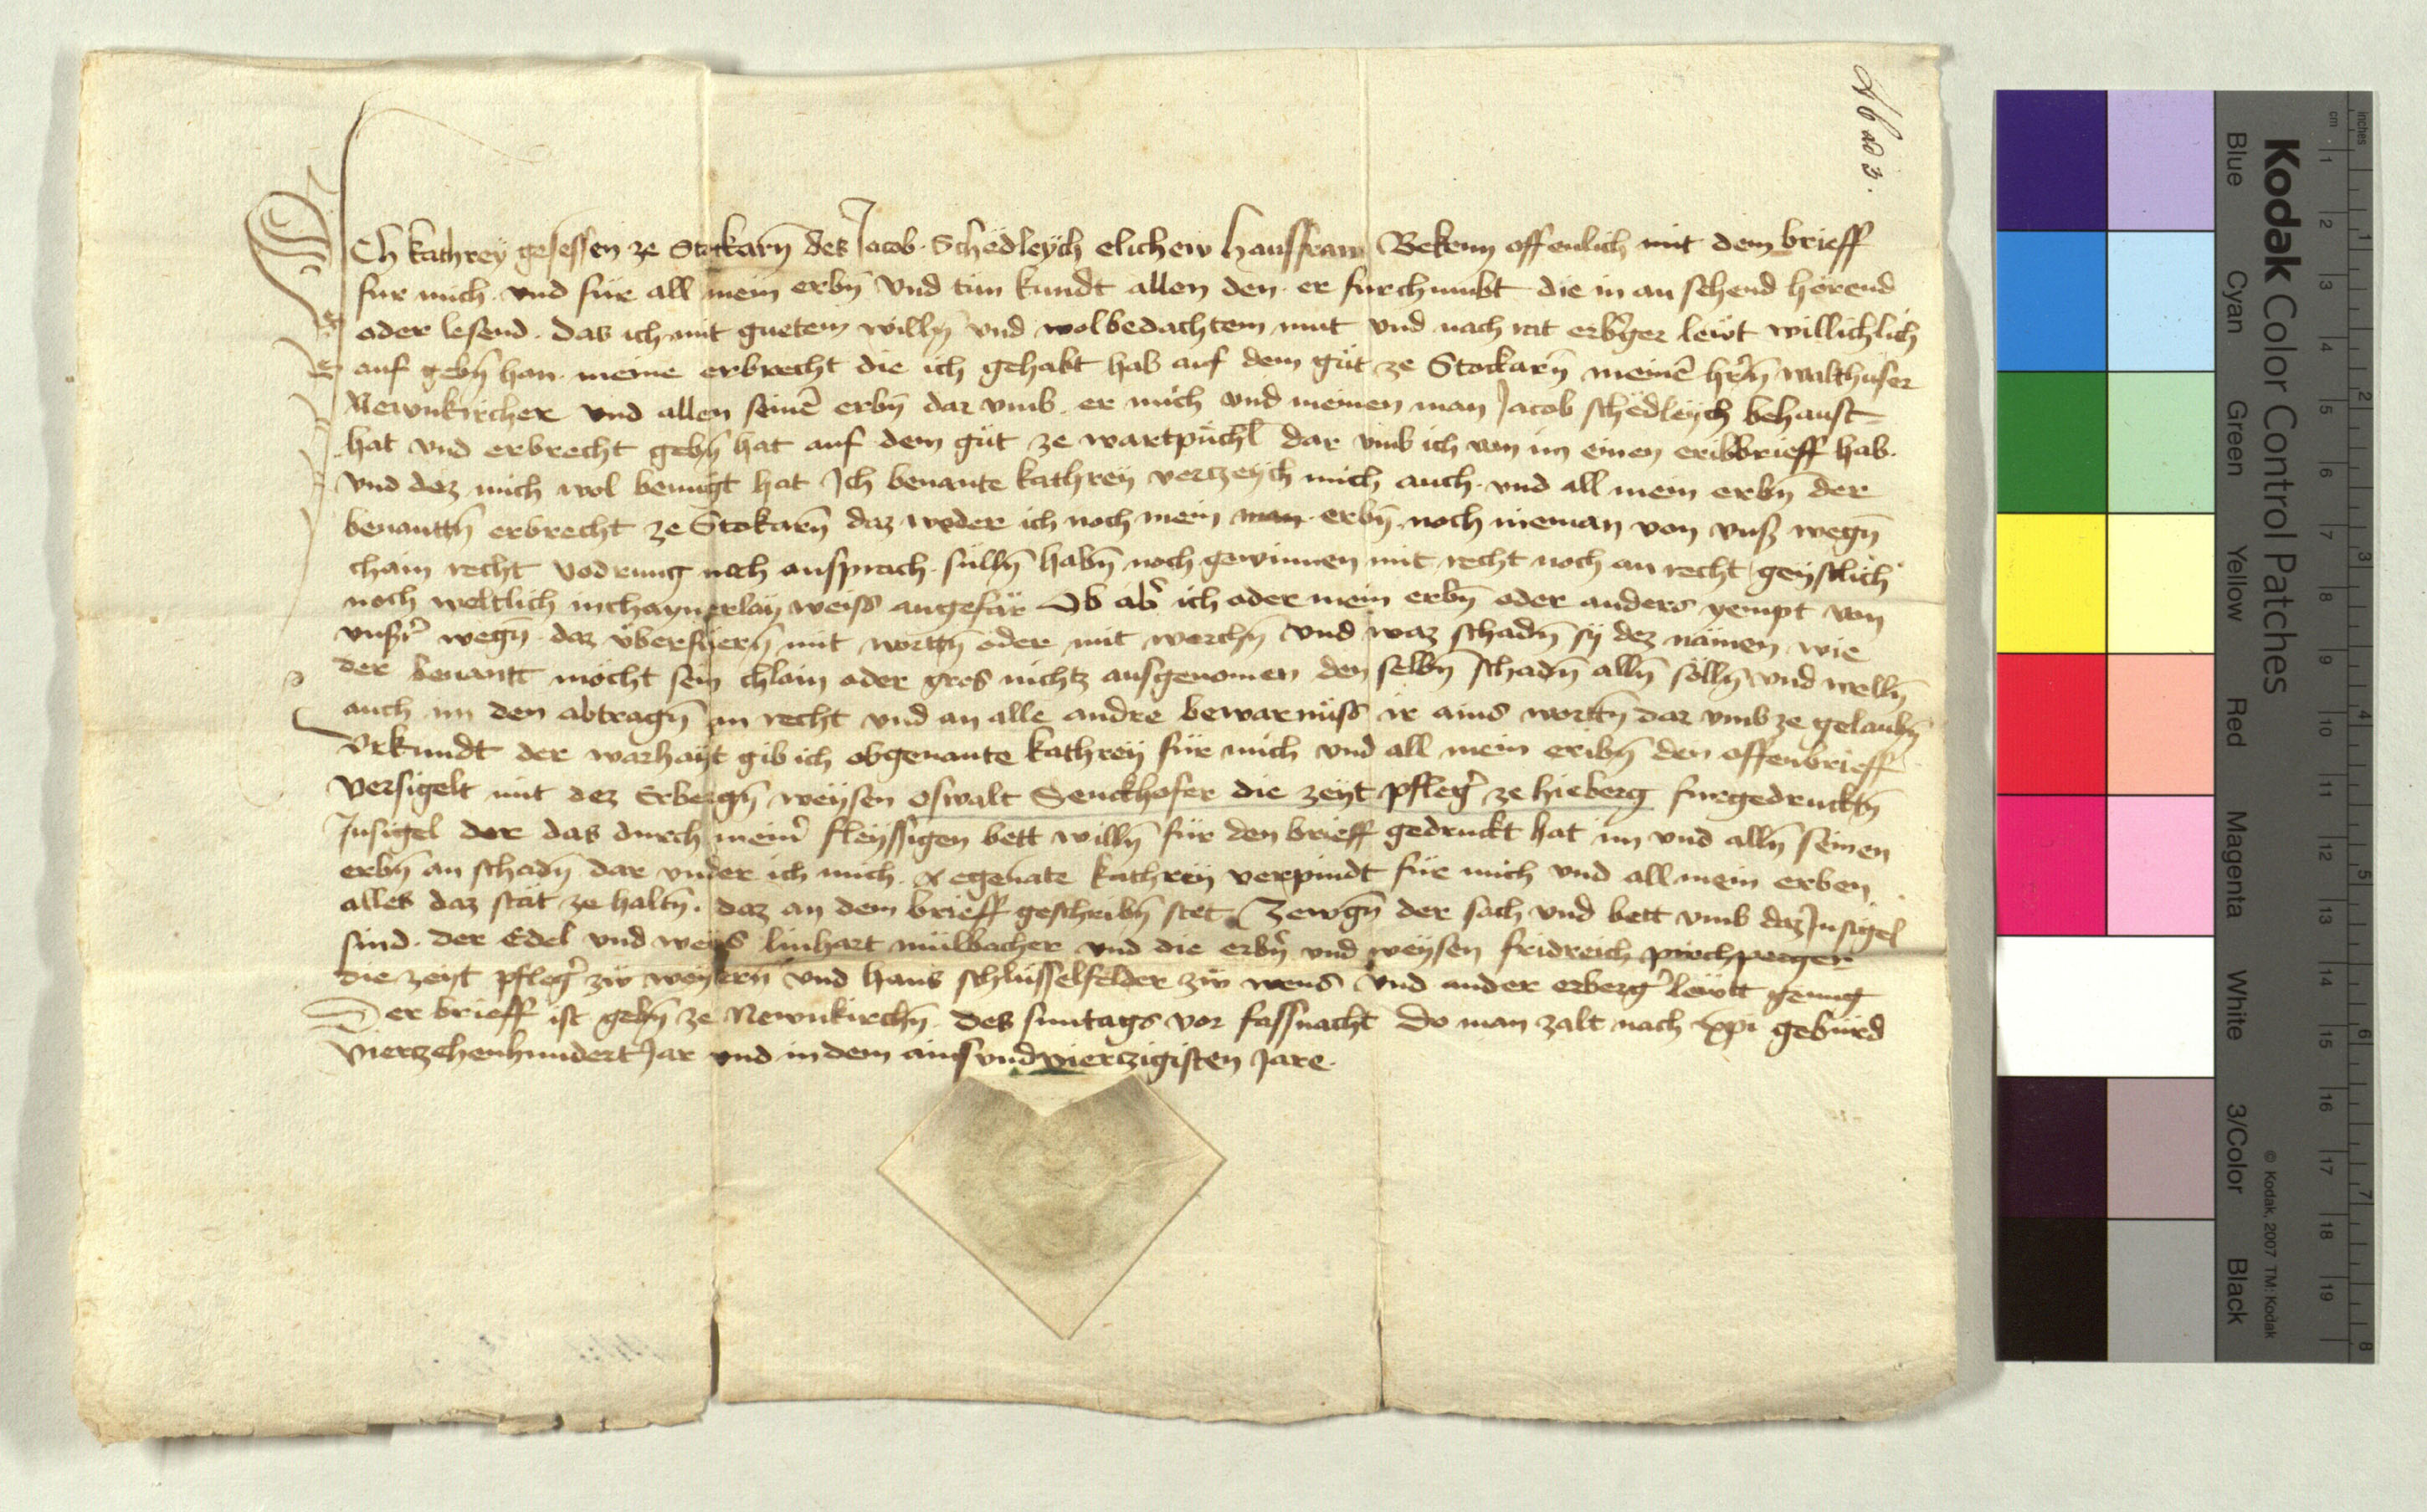 ICh kathrey gesessen ze Stokarn̄ des Jacob Schedleych elichew haussfraw Bekenn offenlich mit dem brieff
fur mich vnd für all mein erbn̄ vnd tün kundt allen den die in an sehend hörend
oder lesend. das ich mit guetem willn̄ vnd wolbedachtem mut vnd nach rat erbger lewt willichlich
auf gebn̄ han meine erbrecht die ich gehabt hab auf dem güt ze Stockarn̄ meinē hern̄ walthuser
Newnkircher vnd allen seinē erbn̄ dar vmb er mich vnd meinen man Jacob schedleych behaust
hat vnd erbrecht gebn̄ hat auf dem güt ze wartpüchl dar vmb ich von im einen eribbrieff hab.
vnd dez mich wol benügt hat Ich benante kathrey vertzeych mich auch vnd all mein erbn̄ der
benanttn̄ erbrecht ze Stokarn̄ daz weder ich noch mein man erbn̄ noch nieman von vnß wegn̄
chain recht vodrung noch ansprach sulln̄ habn̄ noch gewinnen mit recht noch an recht geystlich
noch weltlich inchaynerlay weiss angefär Ob ab' ich oder mein erbn̄ oder anders yempt von
vnßr' wegn̄ daz überfüern̄ mit worttn̄ oder mit werchn̄ vnd waz schadn̄ sy dez nämen wie
der benantt möcht sein chlain oder gros nichtz ausgenomen den selbn̄ schadn̄ alln̄ sölln̄ vnd welln̄
auch im den abtragn̄ an recht vnd an alle andre bewarnüss ir ains worttn̄ dar vmb ze gelaubn̄
Vrkundt der warhayt gib ich obgenante kathrey für mich vnd all mein eribn̄ den offenbrieff
versigelt mit dez Erbergn̄ weysen oswalt Senckhofer die zeyt pfleg' ze hieberg furgedrucktn̄
Jnsigel der das durch mein' fleyssigen bett willn̄ für den brieff gedruckt hat im vnd alln̄ seinen
erbn̄ an schadn̄ dar vnder ich mich egenāte kathrey verpindt für mich vnd all mein erben
alles daz stät ze haltn̄. daz an dem brieff geschribn̄ stet Zewgn̄ der sach vnd bett vmb daz Jnsigel
sind der Edel vnd weys linhart mülbacher vnd die erbn̄ vnd weysen fridreich pirchpeeger
die zeyt pfleg' zw weyern̄ vnd hans schlüsselfelder zw wens vnd ander erberg' lewtt genug
Der brieff ist gebn̄ ze Newnkirchn̄ des suntags vor fassnacht do man zalt nach xpi gebürd
viertzehenhundert Jar vnd in dem ains vnd viertzigisten Jare.
Kodak Color Control Patches
Blue Cyan Green Yellow Red Magenta White 3/Color Black
© Kodak, 2007 TM: Kodak
cm 1 2 3 4 5 6 7 8 9 10 11 12 13 14 15 16 17 18 19
inches 1 2 3 4 5 6 7 8